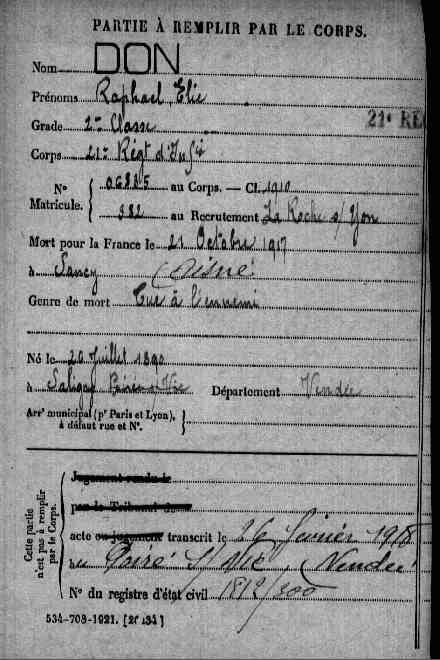 PARTIE À REMPLIR PAR LE CORPS.
Nom DON
Prénoms Raphael, Elie
Grade 2me Classe
21e RÉ
Corps 21e Régt d'Infie
N° Matricule. { au Corps. — Cl. 1910
982 au Recrutement La Roche s/ Yon
Mort pour la France le 21 Octobre 1917
à Sancy (Aisne)
Genre de mort Tué à l'ennemi
Né le 20 Juillet 1890
à Saligny Département Vendée
Arrt municipal (pr Paris et Lyon), à défaut rue et N°. }
Cette partie n'est pas à remplir par le Corps.
Jugement rendu le
par le Tribunal de
acte ou jugement transcrit le 26 février 1918
au Poiré s/ Vie (Vendée)
N° du registre d'état civil 1812/300
534-708-1921. [26434]